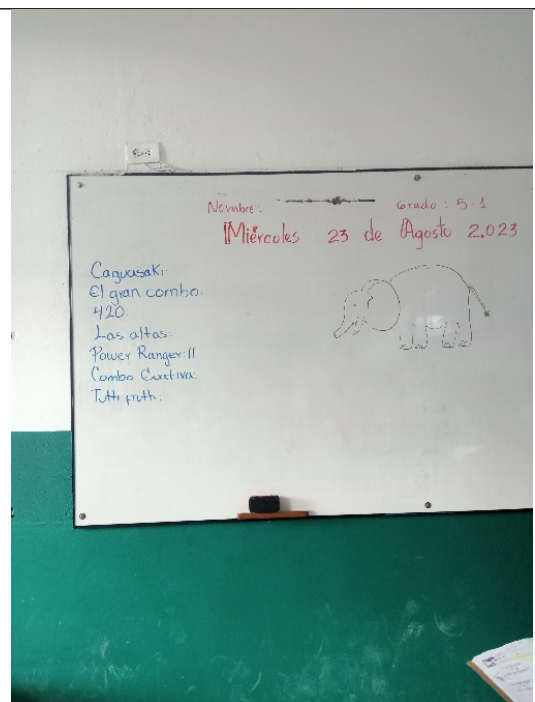 Nombre: Grado: 5-1
Miércoles 23 de Agosto 2.023
Caguasaki:
El gran combo:
420:
Las altas:
Power Ranger: II
Combo
Tutti frutti: